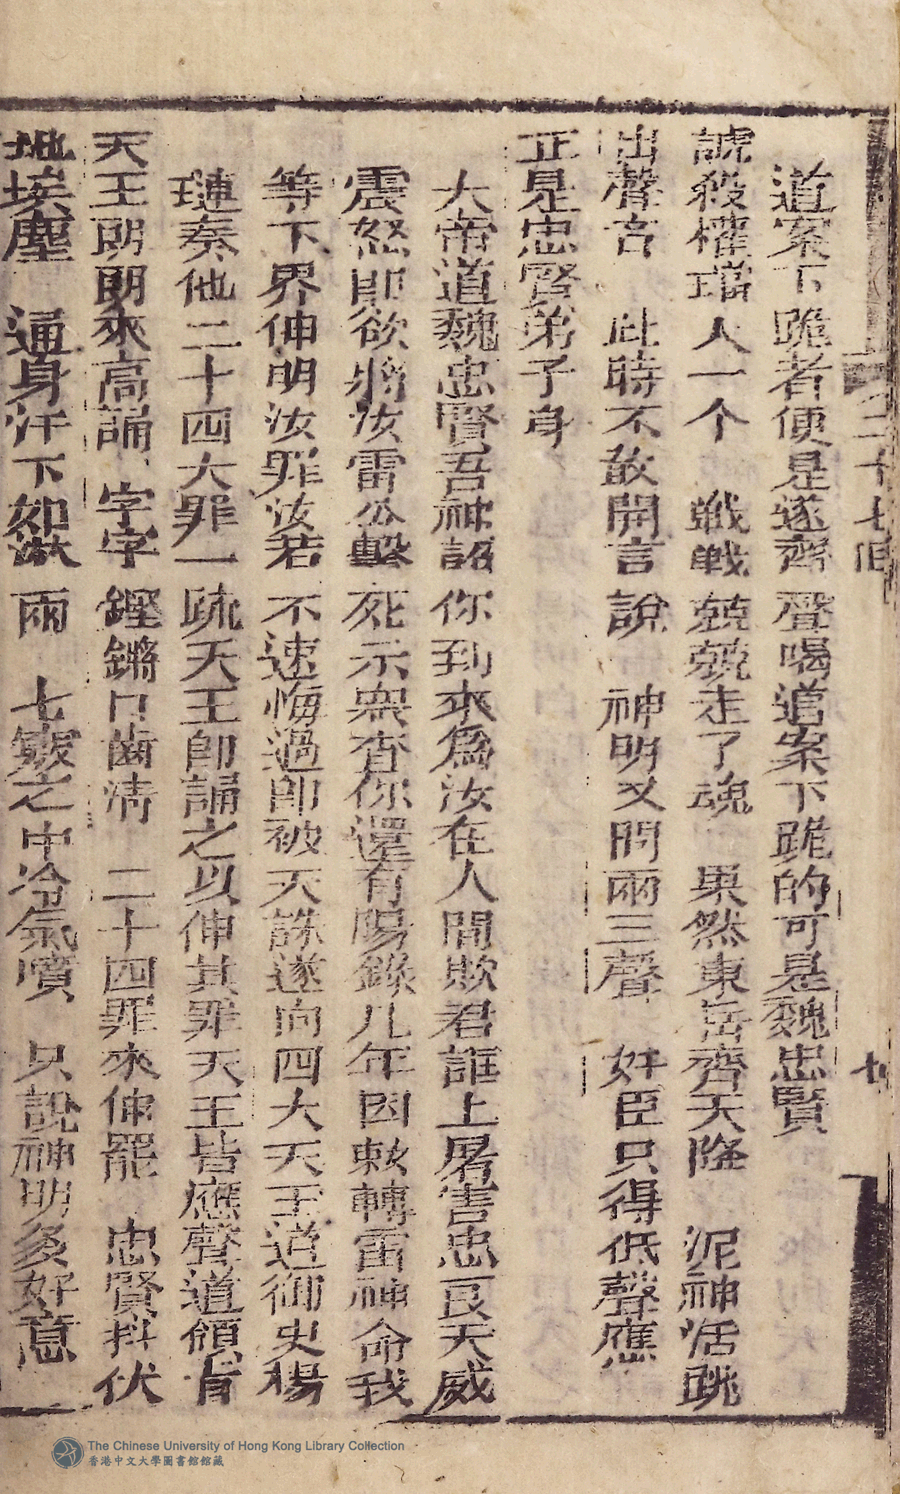 二十七回
七
道案下跪者便是遂齊聲喝道案下跪的可是魏忠賢
諕殺權璫人一个　戰戰兢兢走了魂　果然東岳齊天降　泥神活跳
出聲言　此時不敢開言說　神明又問兩三聲　奸臣只得低聲應
正是忠賢弟子身
大帝道魏忠賢吾神詔你到來為汝在人間欺君誑上屠害忠良天威
震怒即欲將汝雷公擊死示眾查你還有陽錄几年因敕轉雷神命我
等下界伸明汝罪汝若不速悔過即被天誅遂向四大天王道御史楊
璉奏他二十四大罪一疏天王即誦之以伸其罪天王皆應聲道領旨
天王朗朗來高誦　字字鏗鏘口齒清　二十四罪來伸罷　忠賢抖伏
地埃塵　通身汗下如洪雨　七竅之中冷氣噴　只說神明多好意
The Chinese University of Hong Kong Library Collection
香港中文大學圖書館館藏